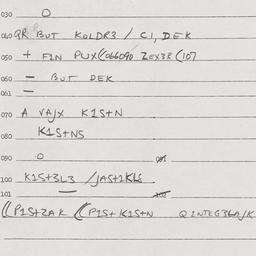 030 0
040 QR BUT KOLDR3 / CI, DEK
050 + FIN PUX((066090 ZEX3R (107
060 — BUT DEK
061 —
070 A VAJX K1S+N
080 K1S+NS
090 0
100 K1S+3L3 /JAS+1KLS
101
((P1S+ZAK ((P1S+ K1S+N QINTEG3LAJK